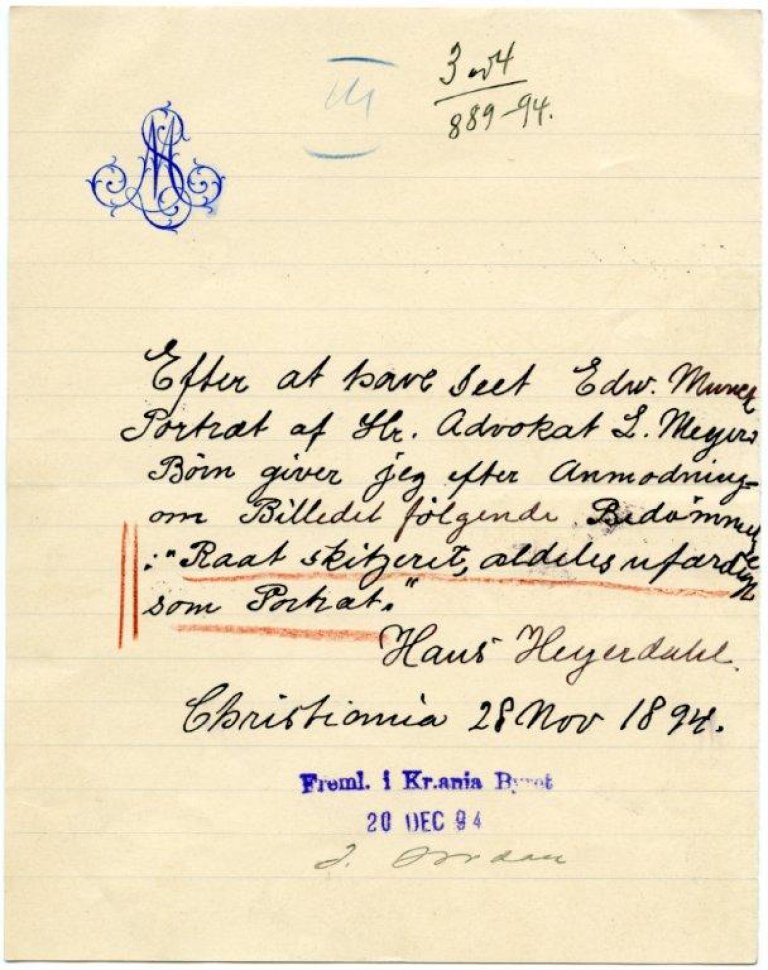 3 av 4
889-94.
Efter at have seet Edv. Munch
Portræt af Hr. Advokat L. Meyers
Børn giver jeg efter Anmodning
om Billedet følgende Bedømmelse
: "Raat skitzeret, aldeles ufærdig
som Portræt."
Hans Heyerdahl.
Christiania 28 Nov 1894.
Freml. i Kr.ania Byret
20 DEC 94